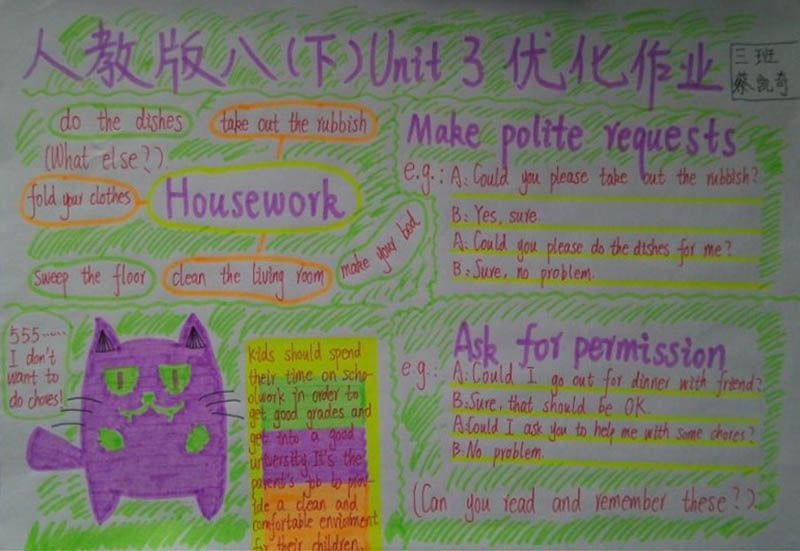 人教版八(下)Unit 3 优化作业
三班
蔡凯奇
do the dishes
take out the rubbish
(What else?).
fold your clothes
Housework
make your bed
sweep the floor
clean the living room
Make polite requests
e.g.: A: Could you please take out the rubbish?
B: Yes, sure.
A: Could you please do the dishes for me?
B: Sure, no problem.
555......
I don't
want to
do chores!
Kids should spend
their time on scho-
olwork in order to
get good grades and
get into a good
university. It's the
parent's job to prov-
ide a clean and
comfortable enviroment
for their children.
Ask for permission
e.g.: A: Could I go out for dinner with friend?
B: Sure, that should be OK.
A: Could I ask you to help me with some chores?
B: No problem.
(Can you read and remember these?).